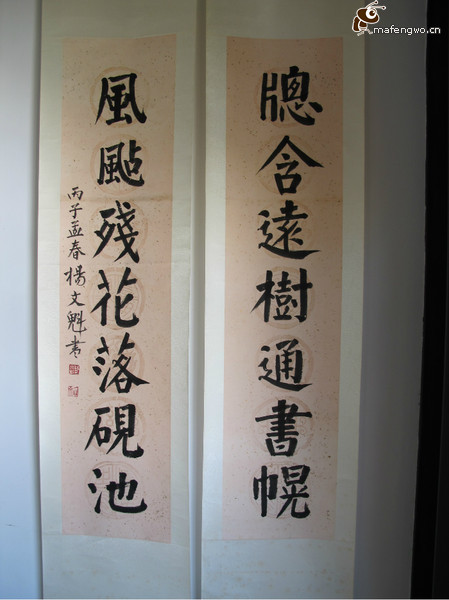 牕含遠樹通書幌
風颭殘花落硯池
丙子孟春楊文魁書
mafengwo.cn